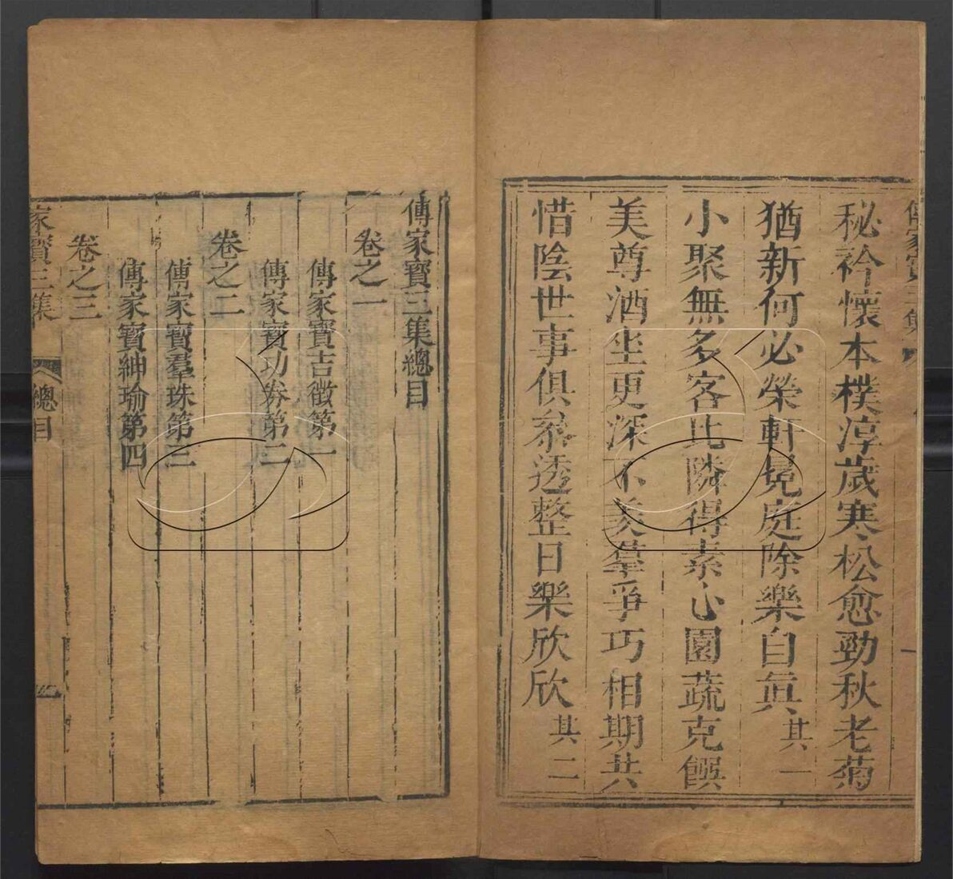 秘衿懷本樸淳歲寒松愈勁秋老菊
猶新何必榮軒冕庭除樂自眞其一
小聚無多客比隣得素心園蔬克饌
美尊酒坐更深不羡羣爭巧相期共
惜陰世事俱叅透整日樂欣欣其二
傳家寶三集總目
卷之一
傳家寶吉徵第一
傳家寶功券第二
卷之二
傳家寶羣珠第三
傳家寶紳瑜第四
卷之三
家寶三集 總目